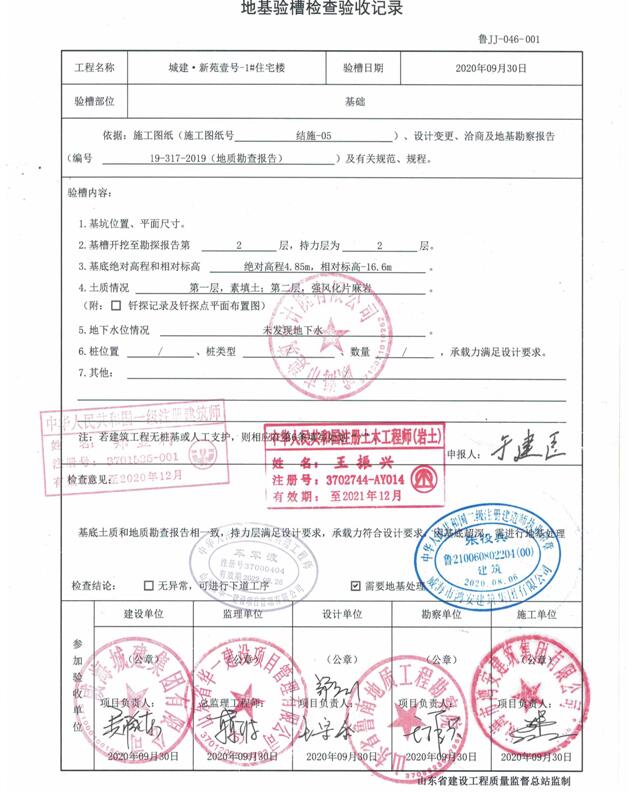 地基验槽检查验收记录
鲁JJ-046-001
工程名称 城建·新苑壹号-1#住宅楼 验槽日期 2020年09月30日
验槽部位 基础
依据：施工图纸（施工图纸号 结施-05 ）、设计变更、洽商及地基勘察报告
（编号 19-317-2019（地质勘查报告） ）及有关规范、规程。
验槽内容：
1.基坑位置、平面尺寸。
2.基槽开挖至勘探报告第 2 层，持力层为 2 层。
3.基底绝对高程和相对标高 绝对高程4.85m，相对标高-16.6m 。
4.土质情况 第一层，素填土；第二层，强风化片麻岩 。
（附：□ 钎探记录及钎探点平面布置图）
5.地下水位情况 未发现地下水 。
6.桩位置 / 、桩类型 / 、数量 / ，承载力满足设计要求。
7.其他：
中华人民共和国一级注册建筑师
注册号：3701535-001
至2020年12月
注：若建筑工程无桩基或人工支护，则相应
中华人民共和国注册土木工程师(岩土)
姓名：王振兴
注册号：3702744-AY014
有效期：至2021年12月
申报人：于建匡
检查意见：
基底土质和地质勘查报告相一致，持力层满足设计要求，承载力符合设计要求，
需进行地基处理
注册号37000404
鲁210060802204(00)
建筑
2020.08.06
威海市鸿安建筑集团有限公司
检查结论： □ 无异常，可进行下道工序 ☑ 需要地基处理
参加验收单位
建设单位 监理单位 设计单位 勘察单位 施工单位
（公章） （公章） （公章） （公章） （公章）
项目负责人： 总监理工程师： 项目负责人： 项目负责人： 项目负责人：
2020年09月30日 2020年09月30日 2020年09月30日 2020年09月30日 2020年09月30日
山东省建设工程质量监督总站监制